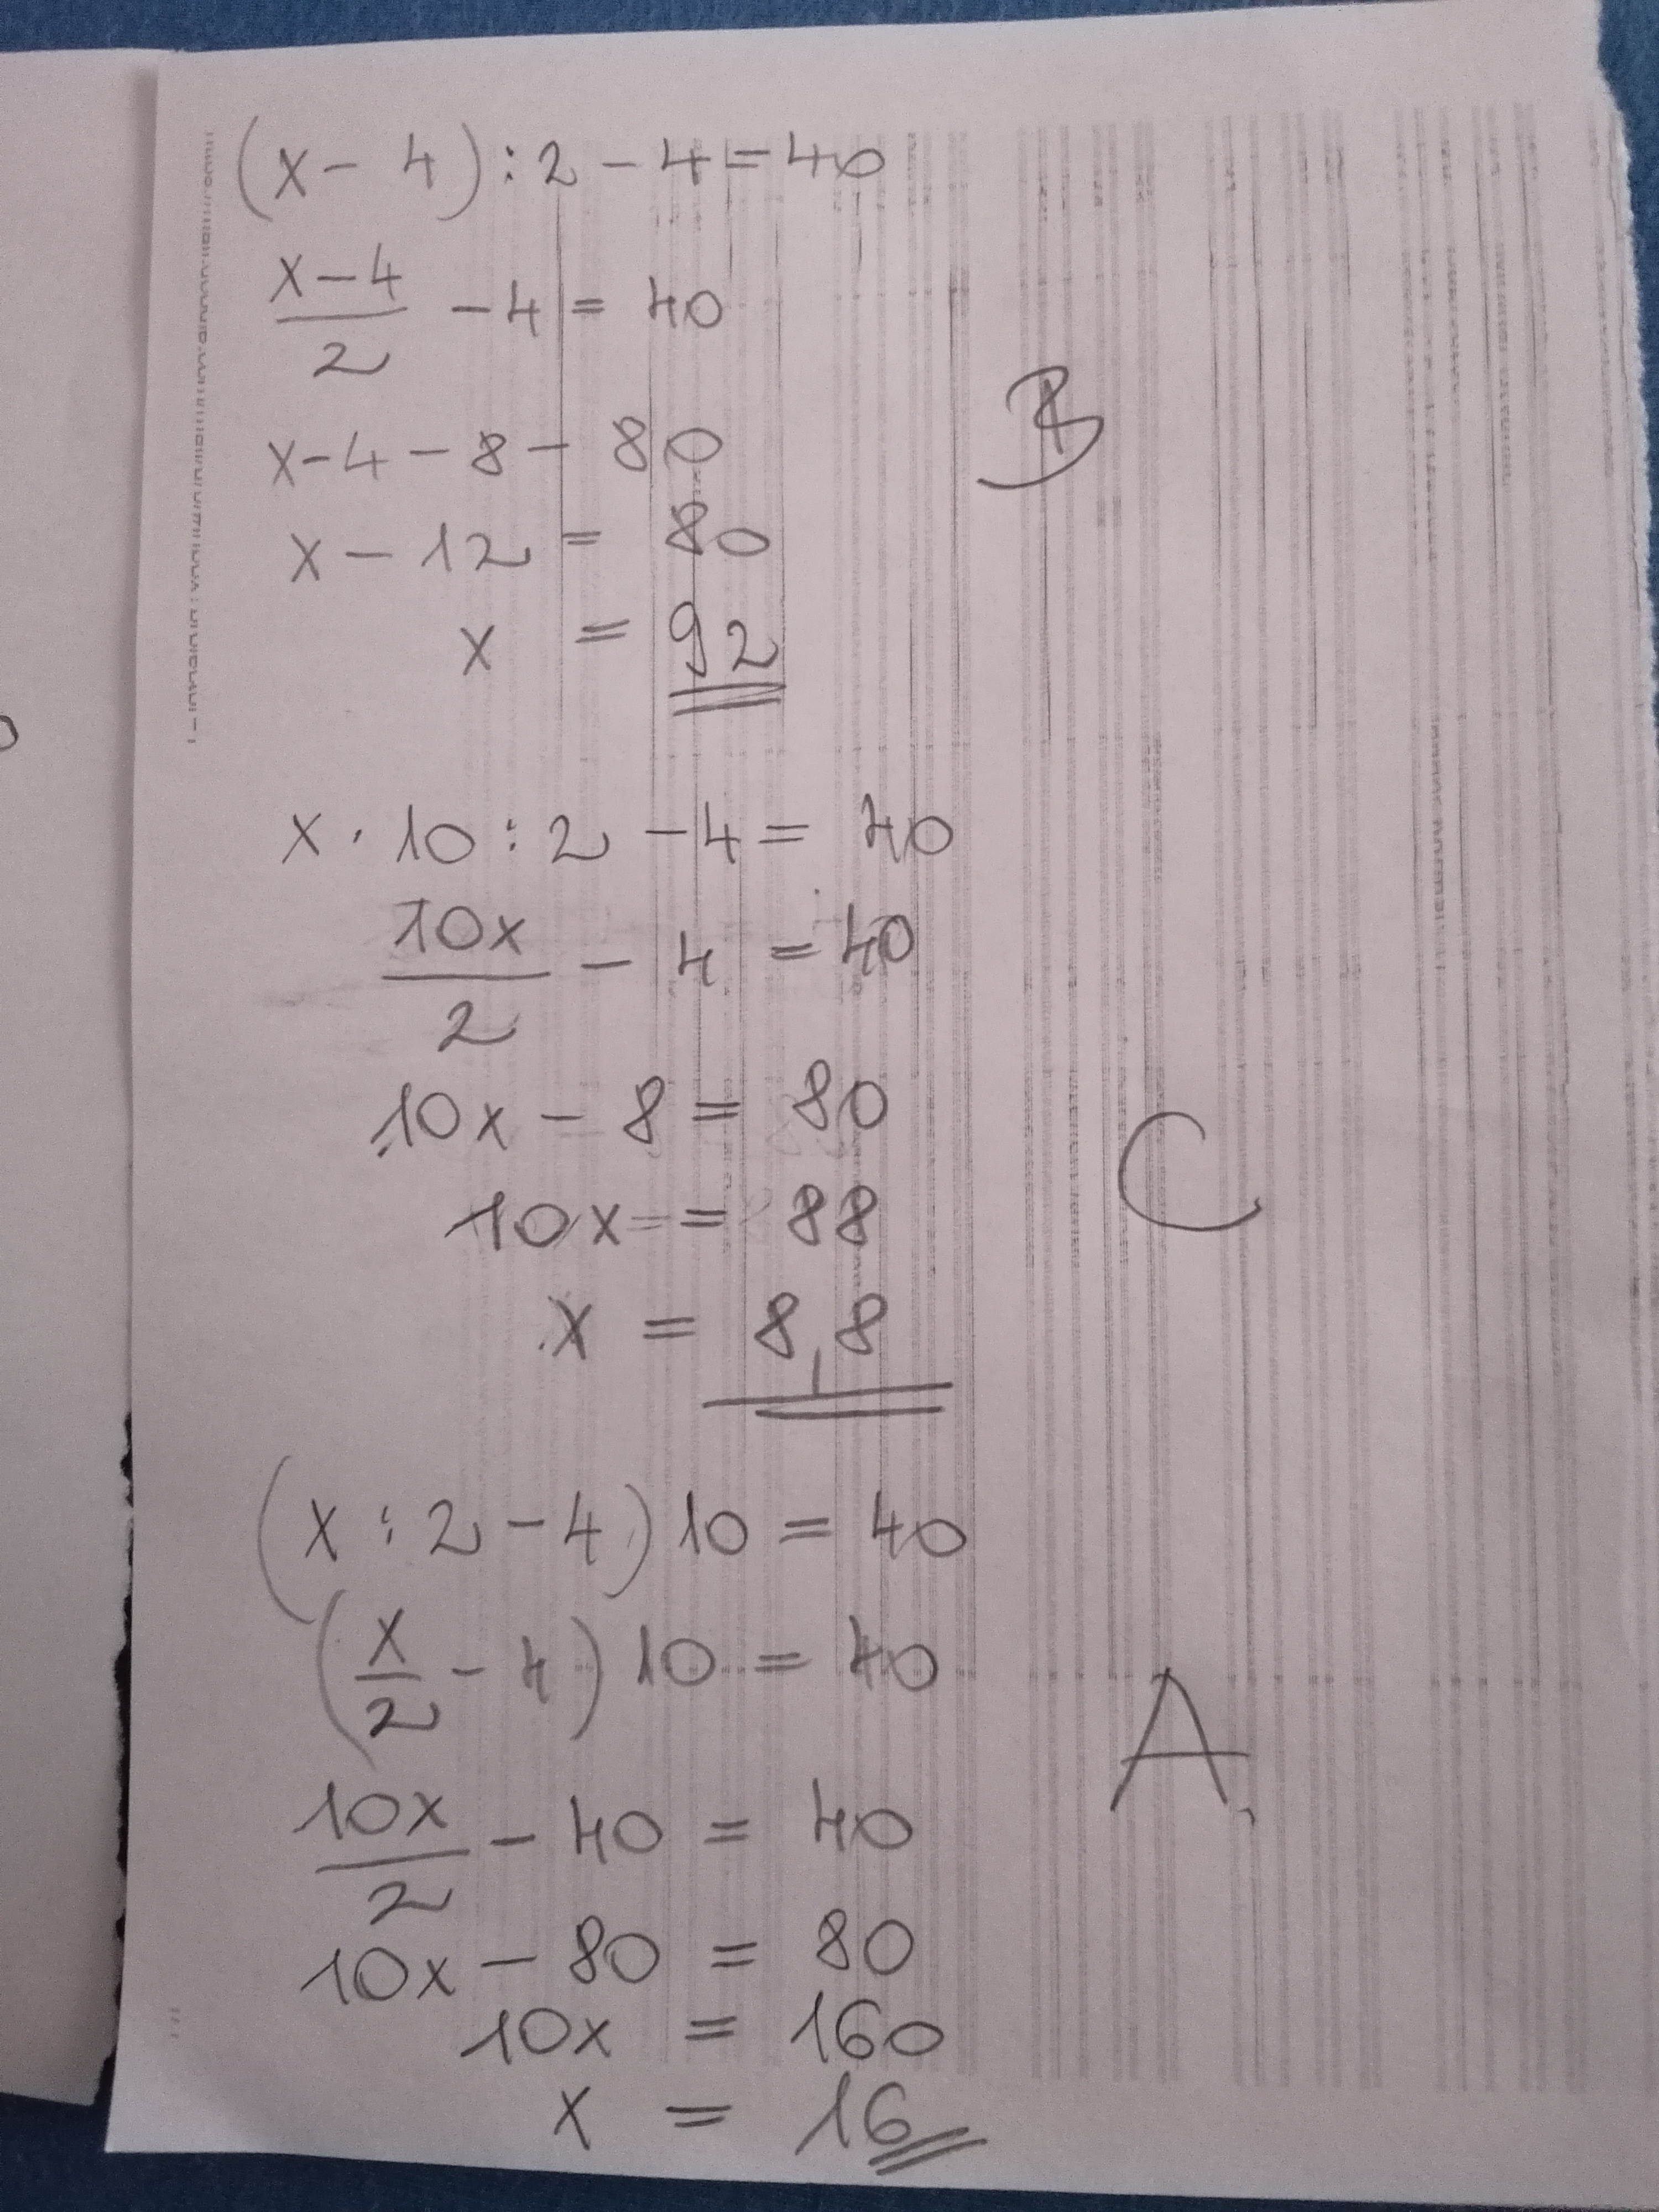 (x - 4) : 2 - 4 = 40
x - 4 / 2 - 4 = 40
x - 4 - 8 - 80
x - 12 = 80
x = 92
B
x · 10 : 2 - 4 = 40
10x / 2 - 4 = 40
10x - 8 = 80
10x = = 88
x = 8,8
C
(x : 2 - 4) 10 = 40
(x / 2 - 4) 10 = 40
10x / 2 - 40 = 40
10x - 80 = 80
10x = 160
x = 16
A.